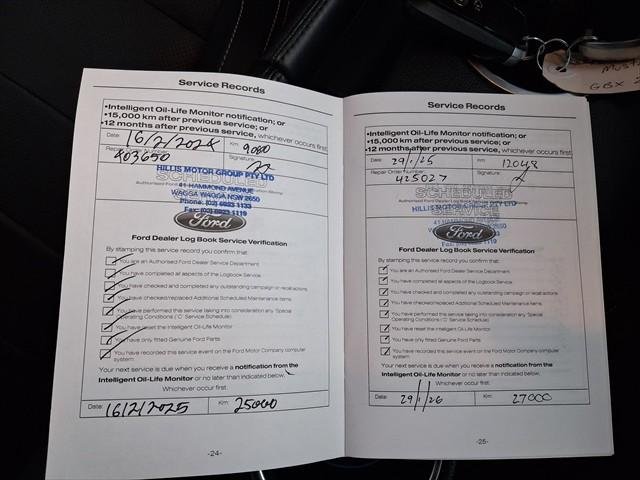 Service Records
•Intelligent Oil-Life Monitor notification; or
•15,000 km after previous service; or
•12 months after previous service, whichever occurs first.
Date: 16/2/2024 Km: 9080
Repair Order Number: 403650 Signature:
HILLIS MOTOR GROUP PTY LTD
SCHEDULED
41 HAMMOND AVENUE
WAGGA WAGGA NSW 2650
Phone: (02) 6933 1133
Fax: (02) 6933 1119
Ford
Ford Dealer Log Book Service Verification
By stamping this service record you confirm that:
You are an Authorised Ford Dealer Service Department
You have completed all aspects of the Logbook Service
You have checked and completed any outstanding campaign or recall actions
You have checked/replaced Additional Scheduled Maintenance items
You have performed this service taking into consideration any 'Special
Operating Conditions / 'C' Service Schedule)
You have reset the Intelligent Oil-Life Monitor
You have only fitted Genuine Ford Parts
You have recorded this service event on the Ford Motor Company computer
system
Your next service is due when you receive a notification from the
Intelligent Oil-Life Monitor or no later than indicated below.
Whichever occur first.
Date: 16/2/2025 Km: 25000
-24-
Service Records
•Intelligent Oil-Life Monitor notification; or
•15,000 km after previous service; or
•12 months after previous service, whichever occurs first.
Date: 29/1/25 Km: 12048
Repair Order Number: 425027 Signature:
SCHEDULED
SERVICE
HILLIS MOTOR GROUP PTY LTD
Ford
Ford Dealer Log Book Service Verification
By stamping this service record you confirm that:
You are an Authorised Ford Dealer Service Department
You have completed all aspects of the Logbook Service
You have checked and completed any outstanding campaign or recall actions
You have checked/replaced Additional Scheduled Maintenance items
You have performed this service taking into consideration any 'Special
Operating Conditions / 'C' Service Schedule)
You have reset the Intelligent Oil-Life Monitor
You have only fitted Genuine Ford Parts
You have recorded this service event on the Ford Motor Company computer
system
Your next service is due when you receive a notification from the
Intelligent Oil-Life Monitor or no later than indicated below.
Whichever occur first.
Date: 29/1/26 Km: 27000
-25-
GBX